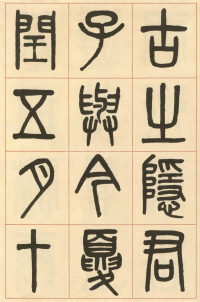 古之隱君
子與今夏
閏五月十